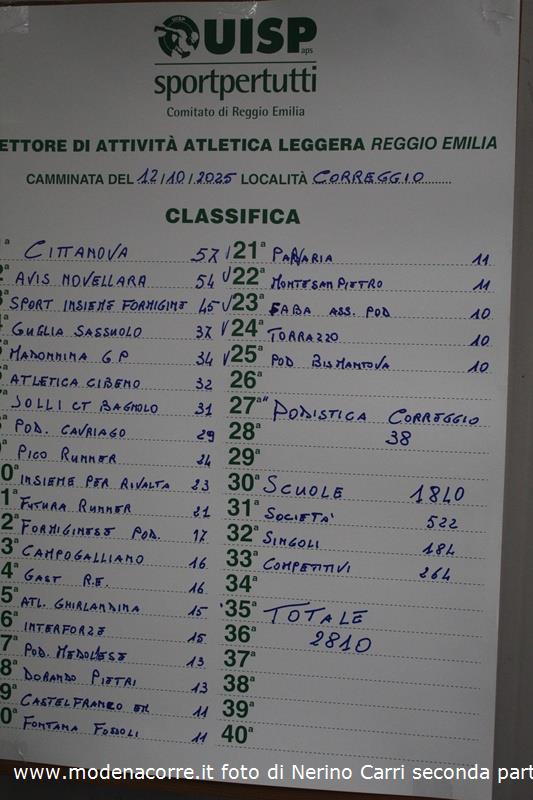 UISP aps
sportpertutti
Comitato di Reggio Emilia
ETTORE DI ATTIVITÀ ATLETICA LEGGERA REGGIO EMILIA
CAMMINATA DEL 12/10/2025 LOCALITÀ CORREGGIO
CLASSIFICA
CITTANOVA 57
AVIS NOVELLARA 54
SPORT INSIEME FORMIGINE 45
GUGLIA SASSUOLO 37
MADONNINA G P 34
ATLETICA CIBENO 32
JOLLI CT BAGNOLO 31
POD. CAVRIAGO 29
PICO RUNNER 24
0ª INSIEME PER RIVALTA 23
1ª FUTURA RUNNER 21
2ª FORMIGINESE POD. 17
3ª CAMPOGALLIANO 16
4ª GAST R.E. 16
5ª ATL. GHIRLANDINA 15
6ª INTERFORZE 15
7ª POD. MEDOLESE 13
8ª DORANDO PIETRI 13
9ª CASTELFRANCO EM 11
0ª FONTANA FOSSOLI 11
21ª PARVARIA 11
22ª MONTESANPIETRO 11
23ª FABA ASS. POD 10
24ª TORRAZZO 10
25ª POD BISMANTOVA 10
26ª
27ª PODISTICA CORREGGIO
28ª 38
29ª
30ª SCUOLE 1840
31ª SOCIETA' 522
32ª SINGOLI 184
33ª COMPETITIVI 264
34ª
35ª TOTALE
36ª 2810
37ª
38ª
39ª
40ª
www.modenacorre.it foto di Nerino Carri seconda part